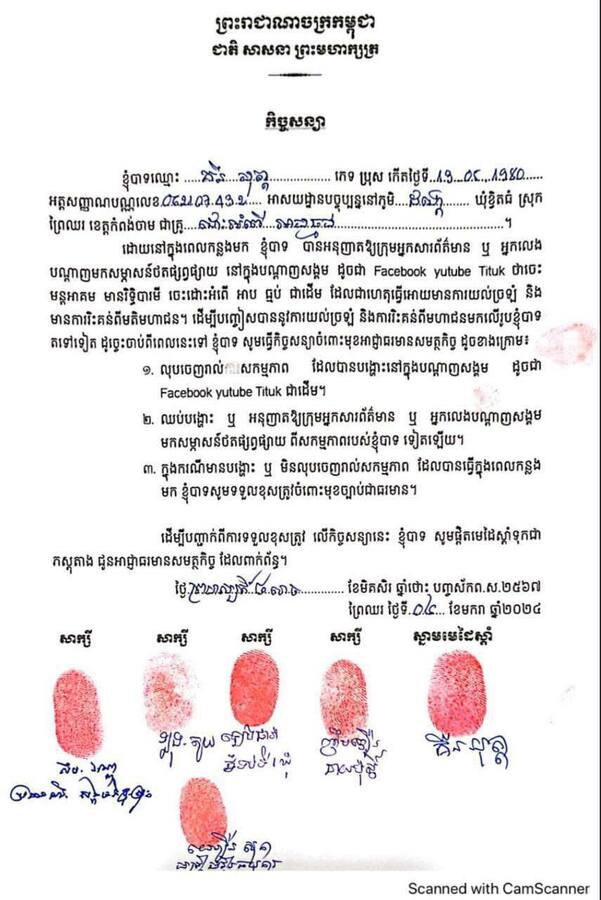 ព្រះរាជាណាចក្រកម្ពុជា
ជាតិ សាសនា ព្រះមហាក្សត្រ
កិច្ចសន្យា
ខ្ញុំបាទឈ្មោះ ភេទ ប្រុស កើតថ្ងៃទី
អត្តសញ្ញាណបណ្ណលេខ អាសយដ្ឋានបច្ចុប្បន្ននៅភូមិ ឃុំខ្វិតធំ ស្រុក
ព្រៃឈរ ខេត្តកំពង់ចាម ជាគ្រូ ។
ដោយនៅក្នុងពេលកន្លងមក ខ្ញុំបាទ បានអនុញាតឱ្យក្រុមអ្នកសារព័ត៌មាន ឬ អ្នកលេង
បណ្តាញមកសម្ភាសន៍ថតផ្សព្វផ្សាយ នៅក្នុងបណ្តាញសង្គម ដូចជា Facebook yutube Tituk ថាចេះ
មន្តអាគម មានរិទ្ធិបារមី ចេះដោះអំពើ អាប ធ្មប់ ជាដើម ដែលជាហេតុធ្វើអោយមានការយល់ច្រឡំ និង
មានការរិះគន់ពីមតិមហាជន។ ដើម្បីបញ្ចៀសបាននូវការយល់ច្រឡំ និងការរិះគន់ពីមហាជនមកលើរូបខ្ញុំបាទ
តទៅទៀត ដូច្នេះចាប់ពីពេលនេះទៅ ខ្ញុំបាទ សូមធ្វើកិច្ចសន្យាចំពោះមុខអាជ្ញាធរមានសមត្ថកិច្ច ដូចខាងក្រោម៖
១. លុបចេញរាល់ សកម្មភាព ដែលបានបង្ហោះនៅក្នុងបណ្តាញសង្គម ដូចជា
Facebook yutube Tituk ជាដើម។
២. ឈប់បង្ហោះ ឬ អនុញាតឱ្យក្រុមអ្នកសារព័ត៌មាន ឬ អ្នកលេងបណ្តាញសង្គម
មកសម្ភាសន៍ថតផ្សព្វផ្សាយ ពីសកម្មភាពរបស់ខ្ញុំបាទ ទៀតឡើយ។
៣. ក្នុងករណីមានបង្ហោះ ឬ មិនលុបចេញរាល់សកម្មភាព ដែលបានធ្វើក្នុងពេលកន្លង
មក ខ្ញុំបាទសូមទទួលខុសត្រូវចំពោះមុខច្បាប់ជាធរមាន។
ដើម្បីបញ្ជាក់ពីការទទួលខុសត្រូវ លើកិច្ចសន្យានេះ ខ្ញុំបាទ សូមផ្តិតមេដៃស្តាំទុកជា
ភស្តុតាង ជូនអាជ្ញាធរមានសមត្ថកិច្ច ដែលពាក់ព័ន្ធ។
ថ្ងៃ ខែមិគសិរ ឆ្នាំថោះ បញ្ចស័កព.ស.២៥៦៧
ព្រៃឈរ ថ្ងៃទី ០៤ ខែមករា ឆ្នាំ២០២៤
សាក្សី សាក្សី សាក្សី សាក្សី ស្នាមមេដៃស្តាំ
Scanned with CamScanner